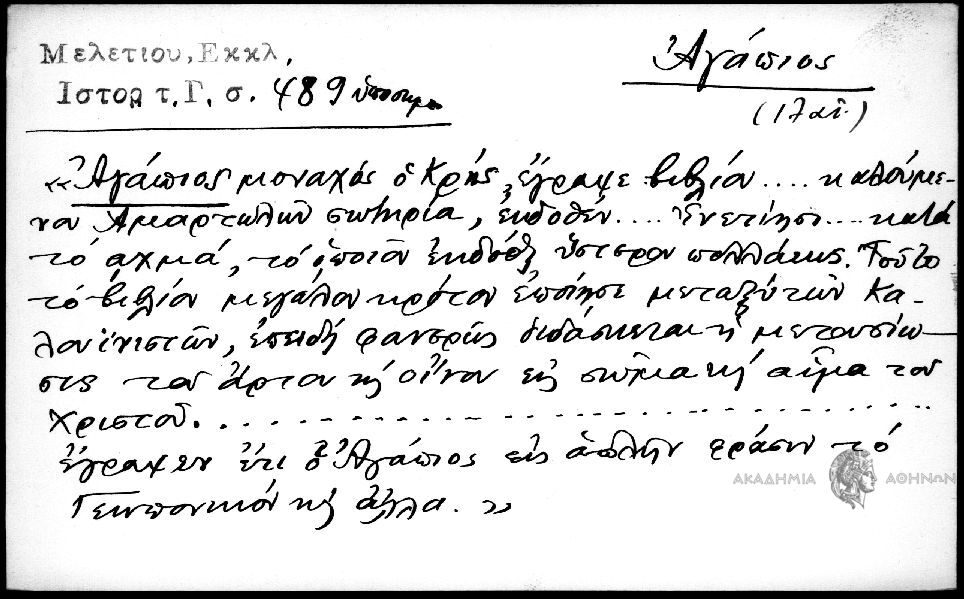 Μελετίου, Εκκλ,
Ιστορ τ. Γ. σ. 489 ὑποσημ.
Ἀγάπιος
(17 αἰ.)
«Ἀγάπιος μοναχός ὁ Κρής, ἔγραψε βιβλίον .... καλούμε-
νον Ἁμαρτωλῶν σωτηρία, ἐκδοθέν .... Ἐνετίησι .... κατά
τό αχμά, τό ὁποῖον ἐκδόθη ὕστερον πολλάκις. Τοῦτο
τό βιβλίον μεγάλον κρότον ἐποίησε μεταξύ τῶν Κα-
λουϊνιστῶν, ἐπειδή φανερῶς διδάσκεται ἡ μετουσίω-
σις του ἄρτου κ οἴνου εἰς σῶμα κ αἷμα του
Χριστοῦ. . . . . . . . . . . . . . . . . . . . . . . . . . . .
ἔγραψεν ἔτι ὁ Ἀγάπιος εἰς ἁπλῆν φράσιν τό
Γεωπονικόν κ ἄλλα. »
ΑΚΑΔΗΜΙΑ ΑΘΗΝΩΝ